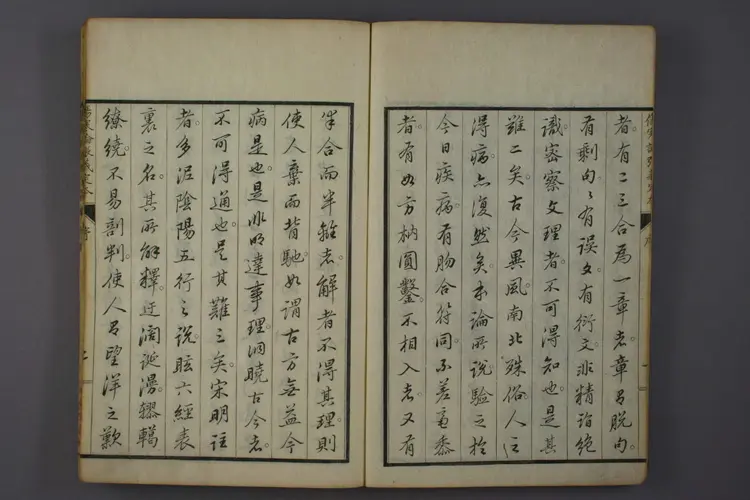 者有二三合為一章者章有脫向
有剩向〻有誤文有衍文非精詣絶
識密察文理者不可得知也是其
難二矣古今異風南北殊俗人之
得病亦復然矣本論所説驗之於
今日疾病有脗合符同不差毫黍
者有如方枘圓鑿不相入者又有
半合而半離者解者不得其理則
使人棄而背馳如謂古方無益今
病是也是非明達事理洞曉古今者
不可得通也是其難三矣宋明註
者多泥陰陽五行之説眩六經表
裏之名其所解釋迂濶誕漫轇轕
繚繞不易剖判使人有望洋之歎